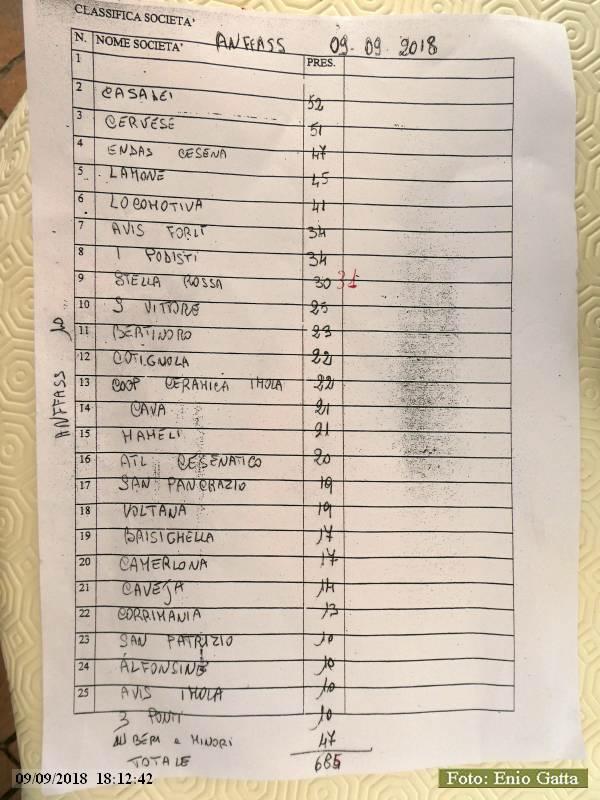 CLASSIFICA SOCIETA'
N. NOME SOCIETA' ANFFASS 09-09 2018
PRES.
1
2 CASALEI 52
3 CERVESE 51
4 ENDAS CESENA 47
5 LAMONE 45
6 LOCOMOTIVA 41
7 AVIS FORLÌ 34
8 I PODISTI 34
9 STELLA ROSSA 30 31
10 S VITTORE 25
11 BERTINORO 23
12 COTIGNOLA 22
13 COOP CERAMICA IMOLA 22
14 CAVA 21
15 MAMELI 21
16 ATL CESENATICO 20
17 SAN PANCRAZIO 19
18 VOLTANA 19
19 BRISIGHELLA 17
20 CAMERLONA 17
21 CAVEJA 14
22 CORRIMANIA 13
23 SAN PATRIZIO 10
24 ALFONSINE 10
25 AVIS IMOLA 10
3 PONTI 10
LIBERI e MINORI 47
TOTALE 685
ANFFASS 10
09/09/2018 18:12:42
Foto: Enio Gatta